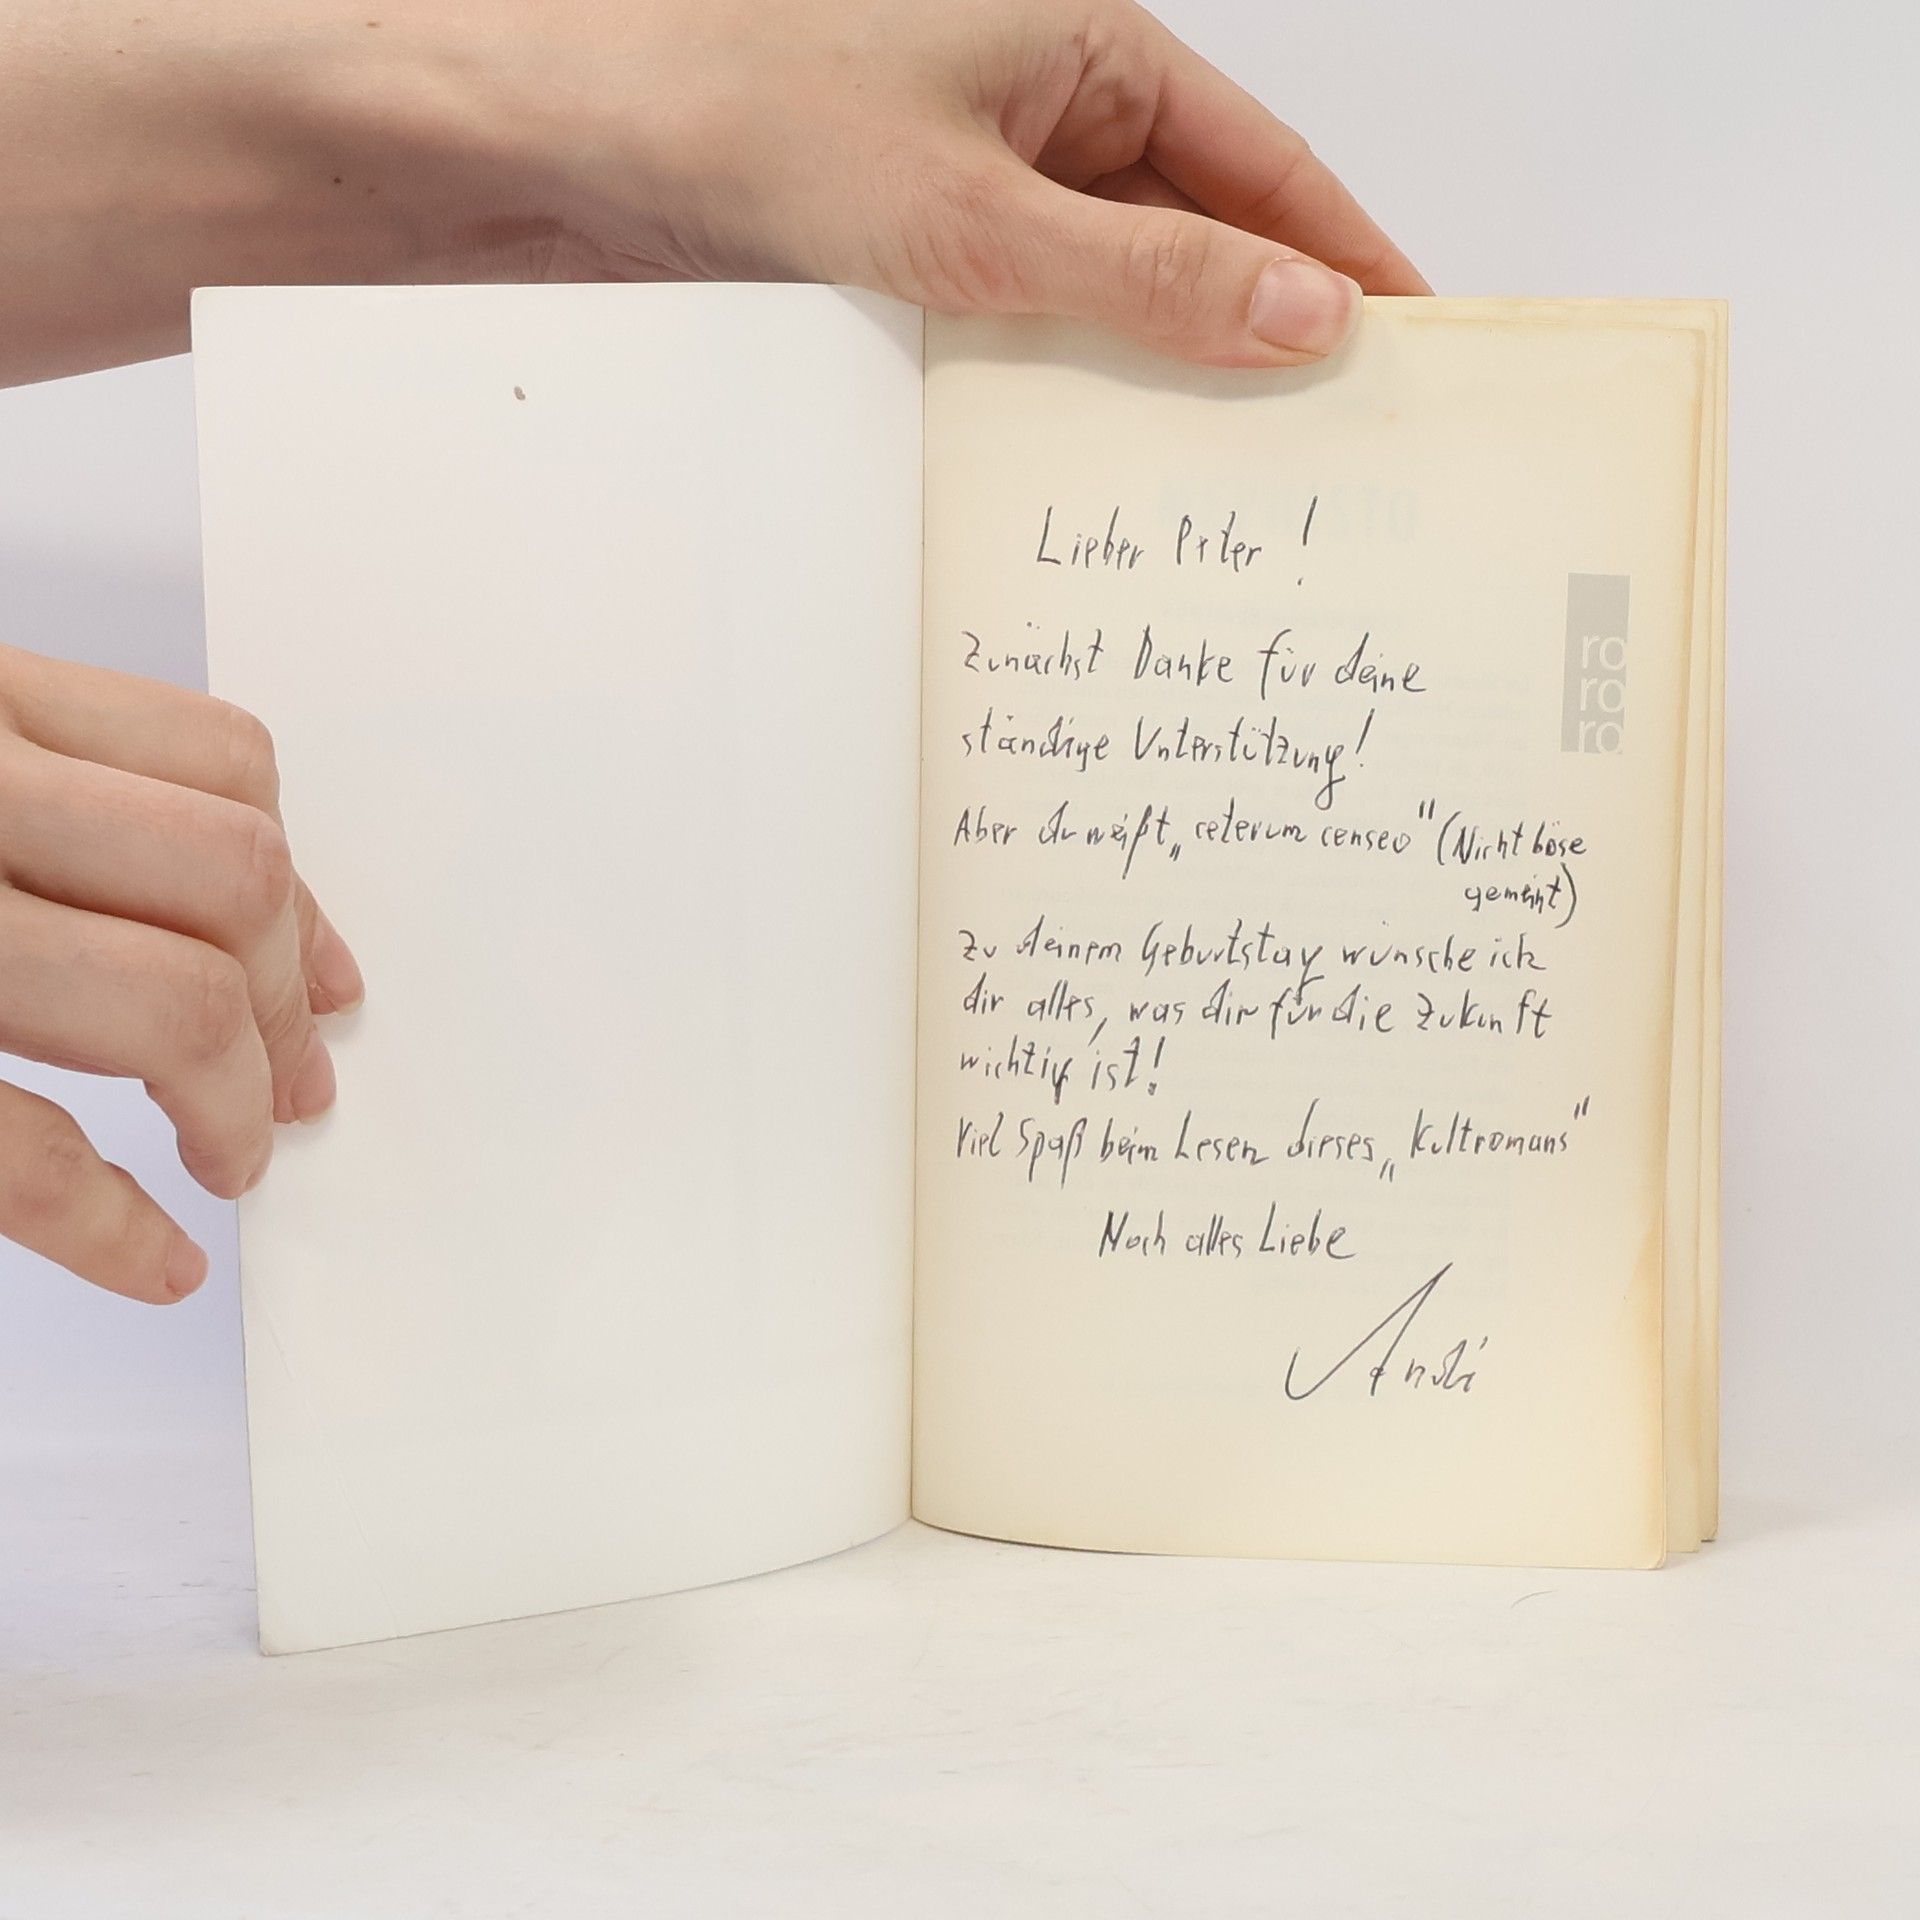 Lieber Peter !
ro
ro
ro
Zunächst Danke für deine
ständige Unterstützung!
Aber du weißt „ceterum censeo" (Nicht böse
gemeint)
Zu deinem Geburtstag wünsche ich
dir alles, was dir für die Zukunft
wichtig ist!
Viel Spaß beim Lesen dieses „Kultromans"
Noch alles Liebe
Andi